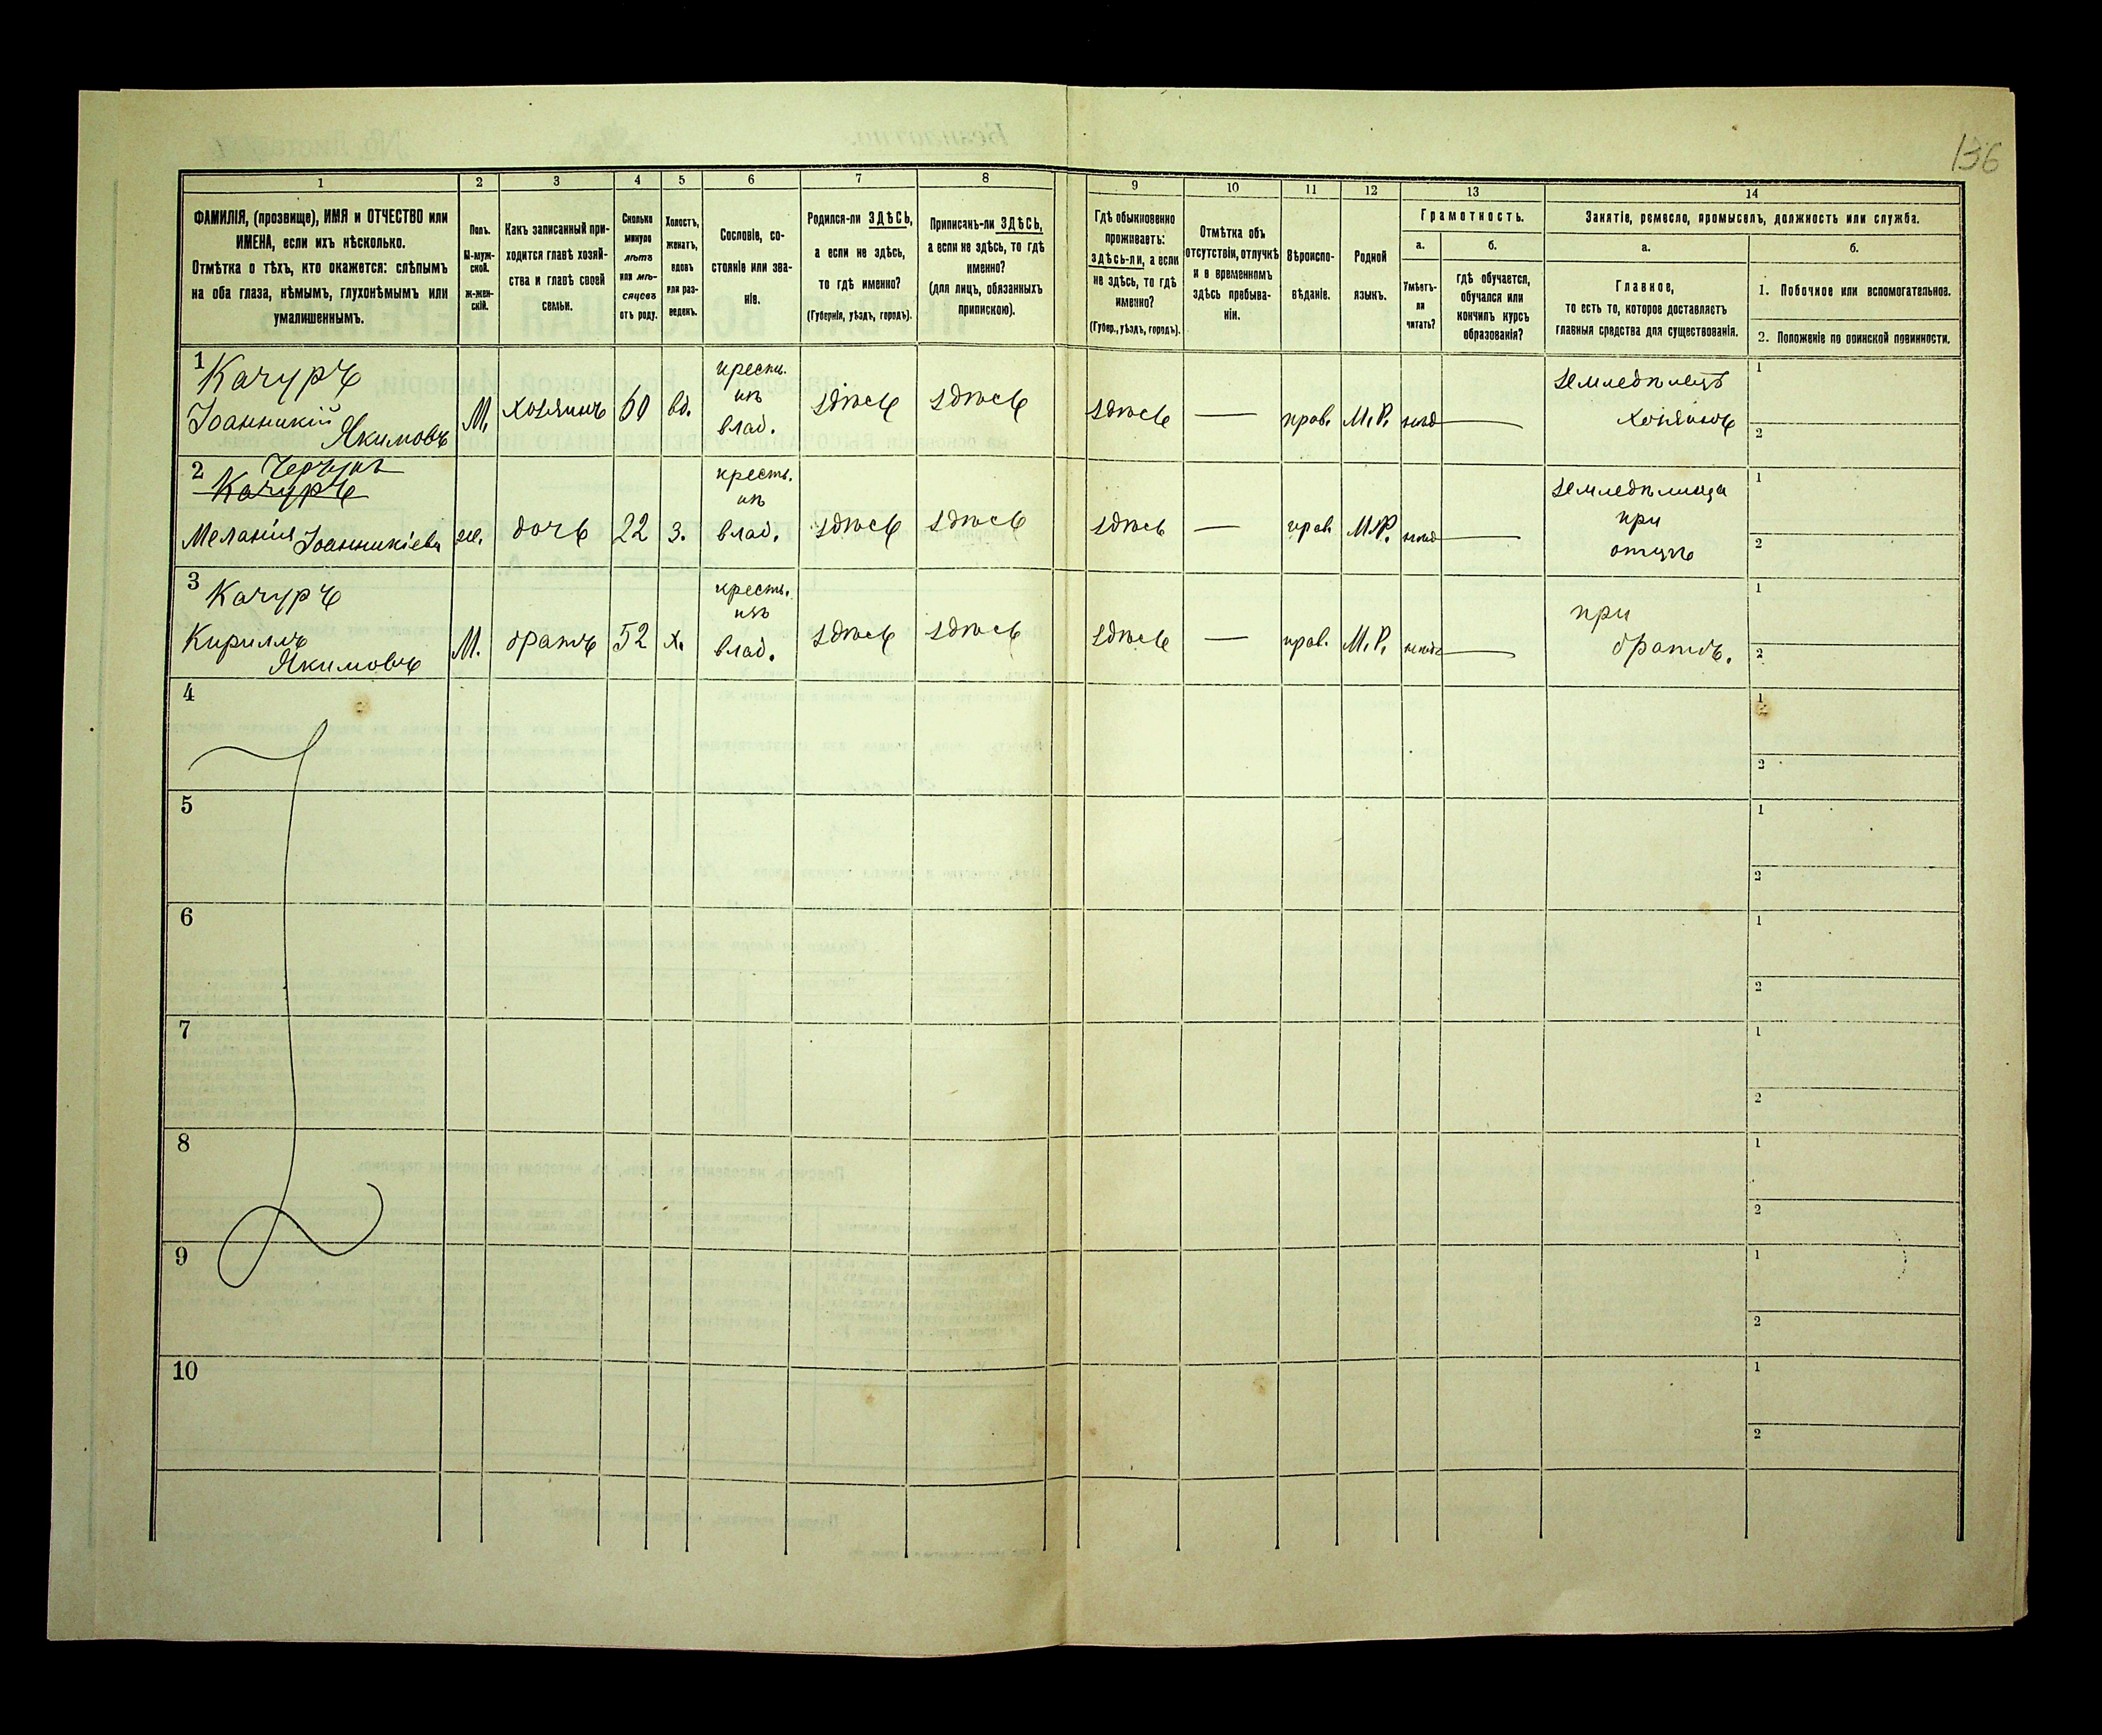 136
1 2 3 4 5 6 7 8 9 10 11 12 13 14
ФАМИЛІЯ, (прозвище), ИМЯ и ОТЧЕСТВО или
ИМЕНА, если ихъ нѣсколько.
Отмѣтка о тѣхъ, кто окажется: слѣпымъ
на оба глаза, нѣмымъ, глухонѣмымъ или
умалишеннымъ.
Полъ.
М-муж-
ской.
Ж-жен-
скій.
Какъ записанный при-
ходится главѣ хозяй-
ства и главѣ своей
семьи.
Сколько
минуло
лѣтъ
или мѣ-
сяцевъ
отъ роду.
Холостъ,
женатъ,
вдовъ
или раз-
веденъ.
Сословіе, со-
стояніе или зва-
ніе.
Родился-ли ЗДѢСЬ,
а если не здѣсь,
то гдѣ именно?
(Губернія, уѣздъ, городъ).
Приписанъ-ли ЗДѢСЬ,
а если не здѣсь, то гдѣ
именно?
(для лицъ, обязанныхъ
припискою).
Гдѣ обыкновенно
проживаетъ:
здѣсь-ли, а если
не здѣсь, то гдѣ
именно?
(Губер., уѣздъ, городъ).
Отмѣтка объ
отсутствіи, отлучкѣ
и о временномъ
здѣсь пребыва-
ніи.
Вѣроиспо-
вѣданіе.
Родной
языкъ.
Грамотность.
а.
Умѣетъ-
ли
читать?
б.
гдѣ обучается,
обучался или
кончилъ курсъ
образованія?
Занятіе, ремесло, промыселъ, должность или служба.
а.
Главное,
то есть то, которое доставляетъ
главныя средства для существованія.
б.
1. Побочное или вспомогательное.
2. Положеніе по воинской повинности.
1 Качуръ
Іоанникій Якимовъ
М. хозяинъ 60 вд.
крестья.
изъ
влад.
здѣсь здѣсь здѣсь — прав. М.Р.
земледѣлецъ
хозяинъ
1
2
2 Качуръ
Меланія Іоанникіева
ж. дочь 22 з.
крестья.
изъ
влад.
здѣсь здѣсь здѣсь — прав. М.Р.
земледѣлица
при
отцѣ
1
2
3 Качуръ
Кирилъ
Якимовъ
М. братъ 52 х.
крестья.
изъ
влад.
здѣсь здѣсь здѣсь — прав. М.Р.
при
братѣ.
1
2
4
1
2
5
1
2
6
1
2
7
1
2
8
1
2
9
1
2
10
1
2